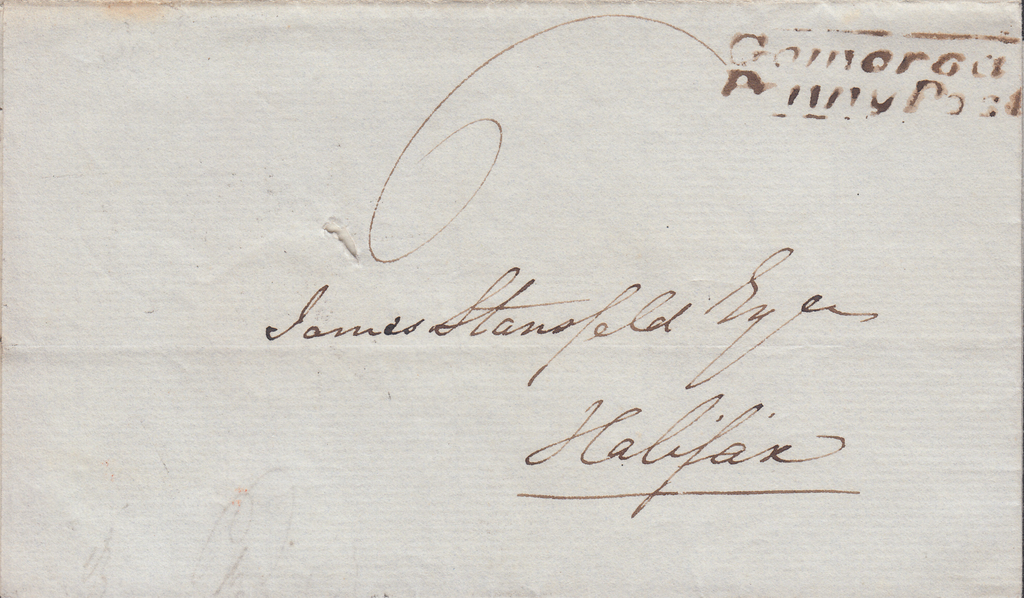 Gomorsal
Penny Post
6
James Stansfeld Esqre
Halifax